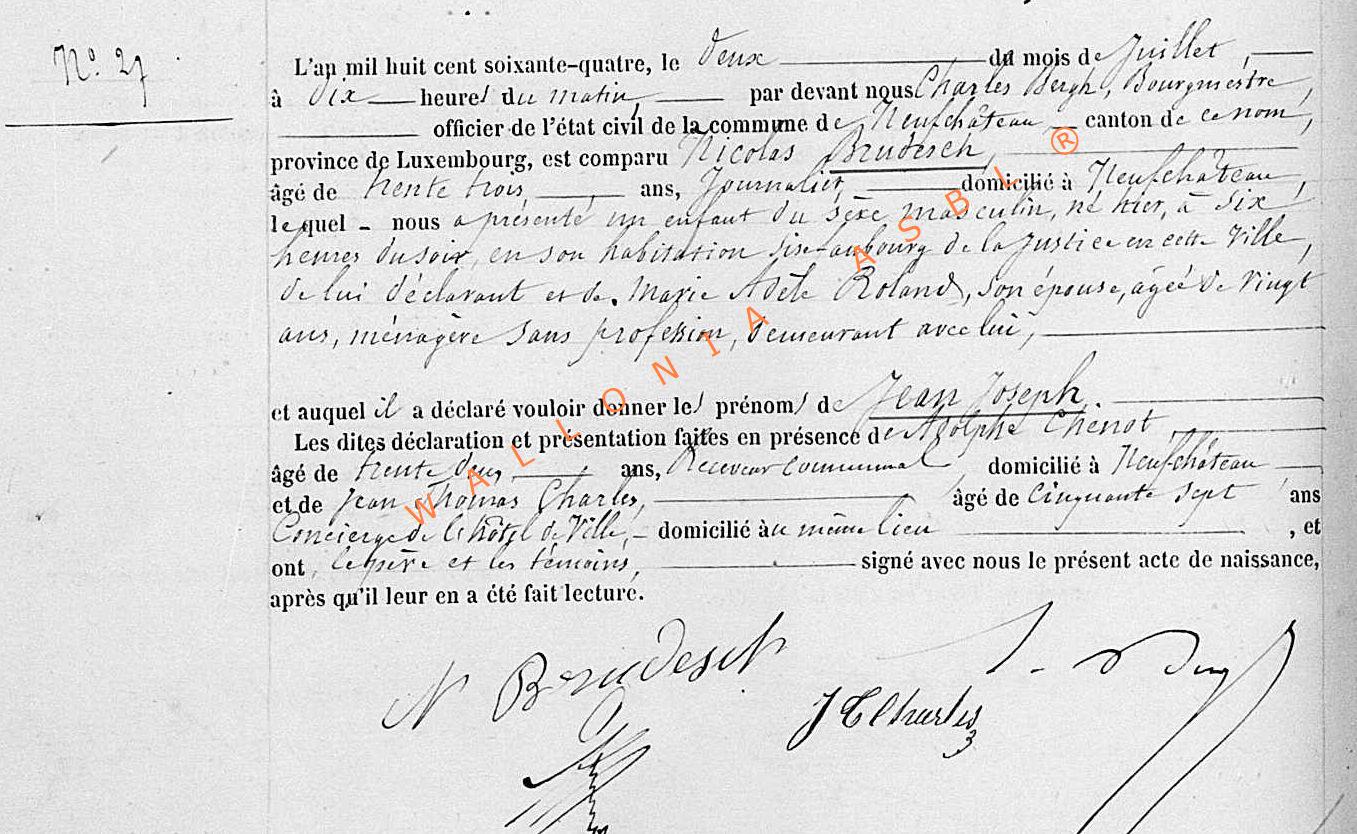 N.° 27
L'an mil huit cent soixante-quatre, le deux du mois de Juillet,
à dix heures du matin, par devant nous Charles Bergh, Bourgmestre,
officier de l'état civil de la commune de Neufchâteau canton de ce nom,
province de Luxembourg, est comparu Nicolas Brudesch,
âgé de trente trois, ans, Journalier, domicilié à Neufchâteau,
lequel - nous a présenté un enfant du sèxe masculin, né hier, à six
heures du soir, en son habitation sise faubourg de la Justice en cette Ville,
de lui déclarant et de Marie Adèle Roland, son épouse, agée de vingt
ans, ménagère sans profession, demeurant avec lui,
et auquel il a déclaré vouloir donner les prénoms de Jean Joseph.
Les dites déclaration et présentation faites en présence de Adolphe Chenot,
âgé de trente deux, ans, Receveur communal domicilié à Neufchâteau
et de Jean Thomas Charles, âgé de cinquante sept ans
Concierge de l'hôtel de Ville, - domicilié au même lieu , et
ont, le père et les témoins, signé avec nous le présent acte de naissance,
après qu'il leur en a été fait lecture.
N Brudesch
J T Charles
WALLONIA ASBL ®